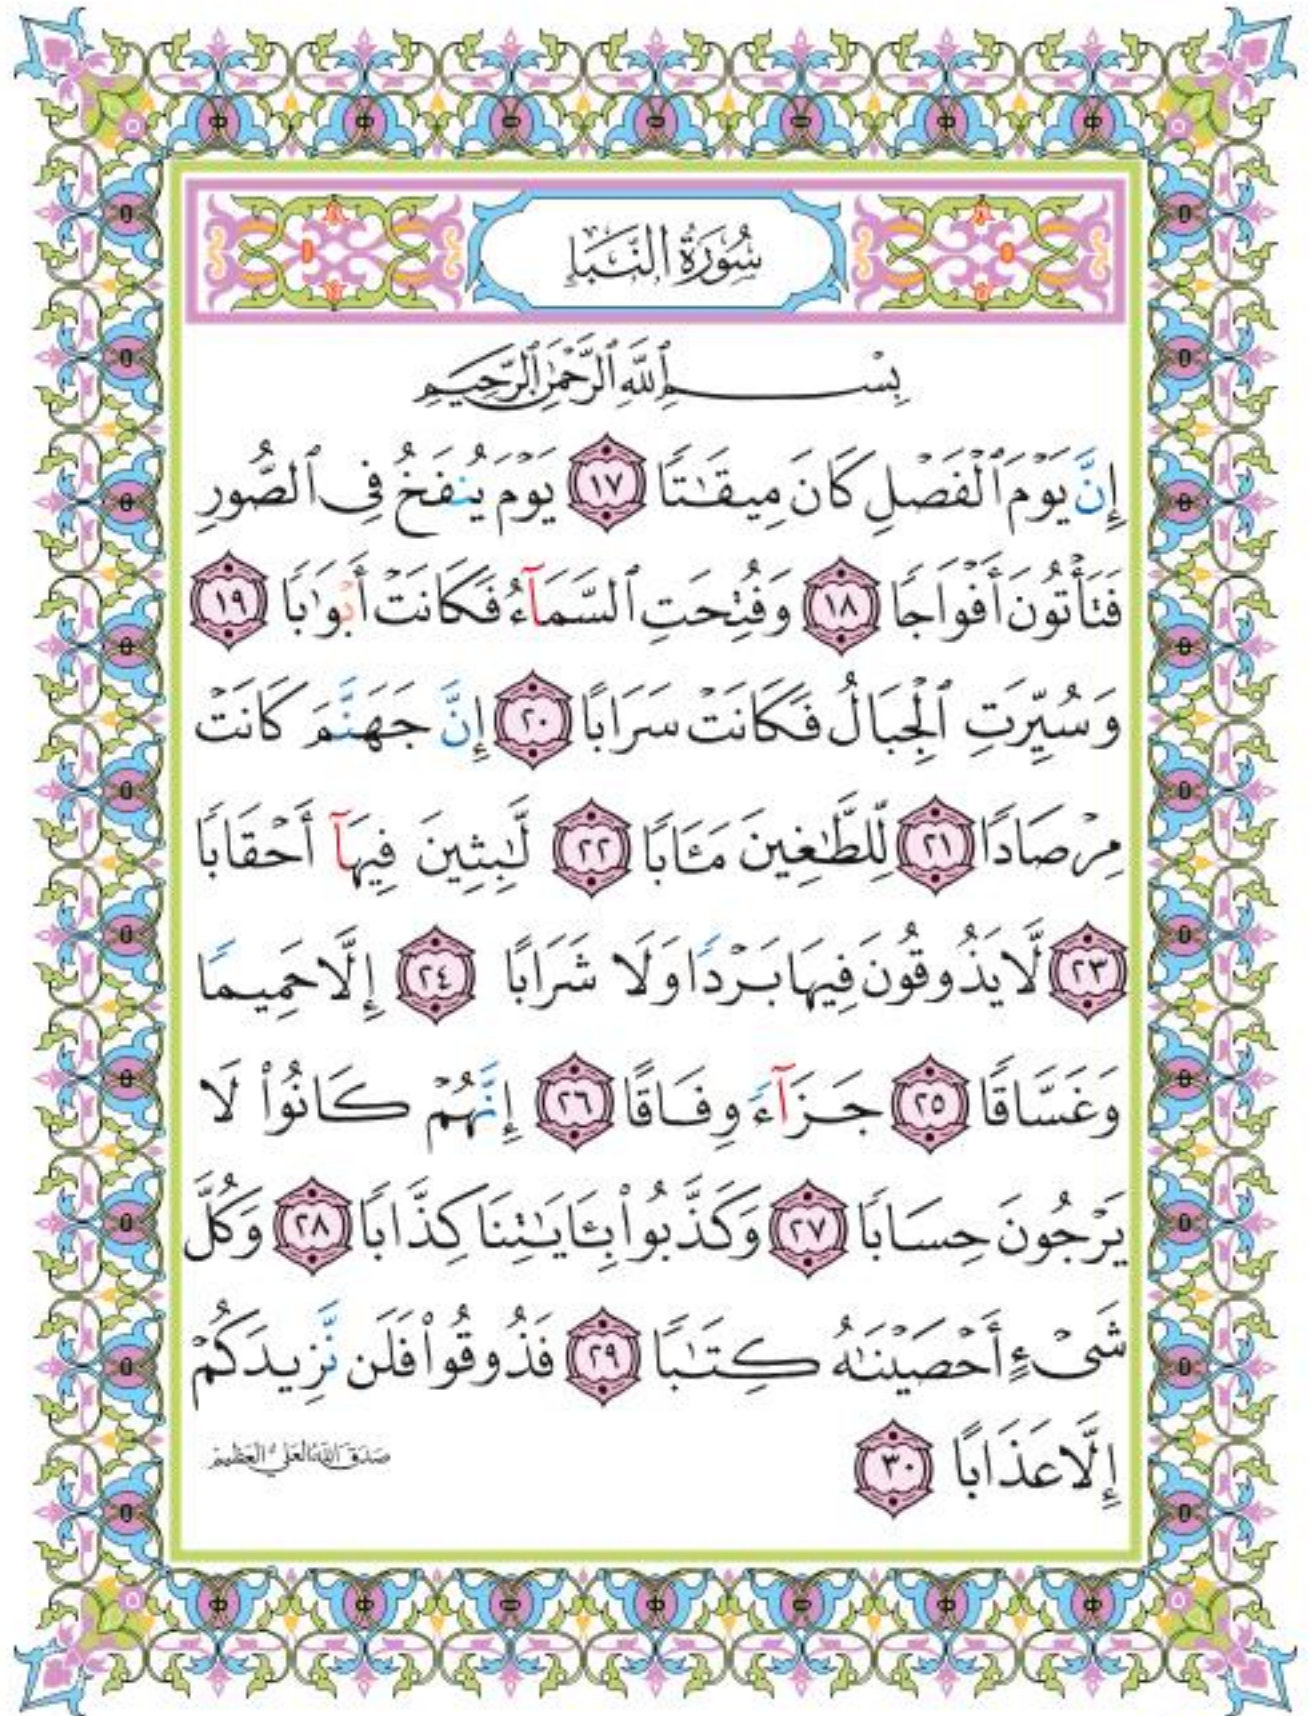 سُورَةُ النَّبَإِ
بِسْمِ ٱللَّهِ ٱلرَّحْمَٰنِ ٱلرَّحِيمِ
إِنَّ يَوْمَ ٱلْفَصْلِ كَانَ مِيقَٰتًا ١٧ يَوْمَ يُنفَخُ فِى ٱلصُّورِ
فَتَأْتُونَ أَفْوَاجًا ١٨ وَفُتِحَتِ ٱلسَّمَآءُ فَكَانَتْ أَبْوَٰبًا ١٩
وَسُيِّرَتِ ٱلْجِبَالُ فَكَانَتْ سَرَابًا ٢٠ إِنَّ جَهَنَّمَ كَانَتْ
مِرْصَادًا ٢١ لِّلطَّٰغِينَ مَـَٔابًا ٢٢ لَّٰبِثِينَ فِيهَآ أَحْقَابًا
٢٣ لَّا يَذُوقُونَ فِيهَا بَرْدًا وَلَا شَرَابًا ٢٤ إِلَّا حَمِيمًا
وَغَسَّاقًا ٢٥ جَزَآءً وِفَاقًا ٢٦ إِنَّهُمْ كَانُوا۟ لَا
يَرْجُونَ حِسَابًا ٢٧ وَكَذَّبُوا۟ بِـَٔايَٰتِنَا كِذَّابًا ٢٨ وَكُلَّ
شَىْءٍ أَحْصَيْنَٰهُ كِتَٰبًا ٢٩ فَذُوقُوا۟ فَلَن نَّزِيدَكُمْ
إِلَّا عَذَابًا ٣٠ صَدَقَ اللَّهُ الْعَلِيُّ الْعَظِيمُ